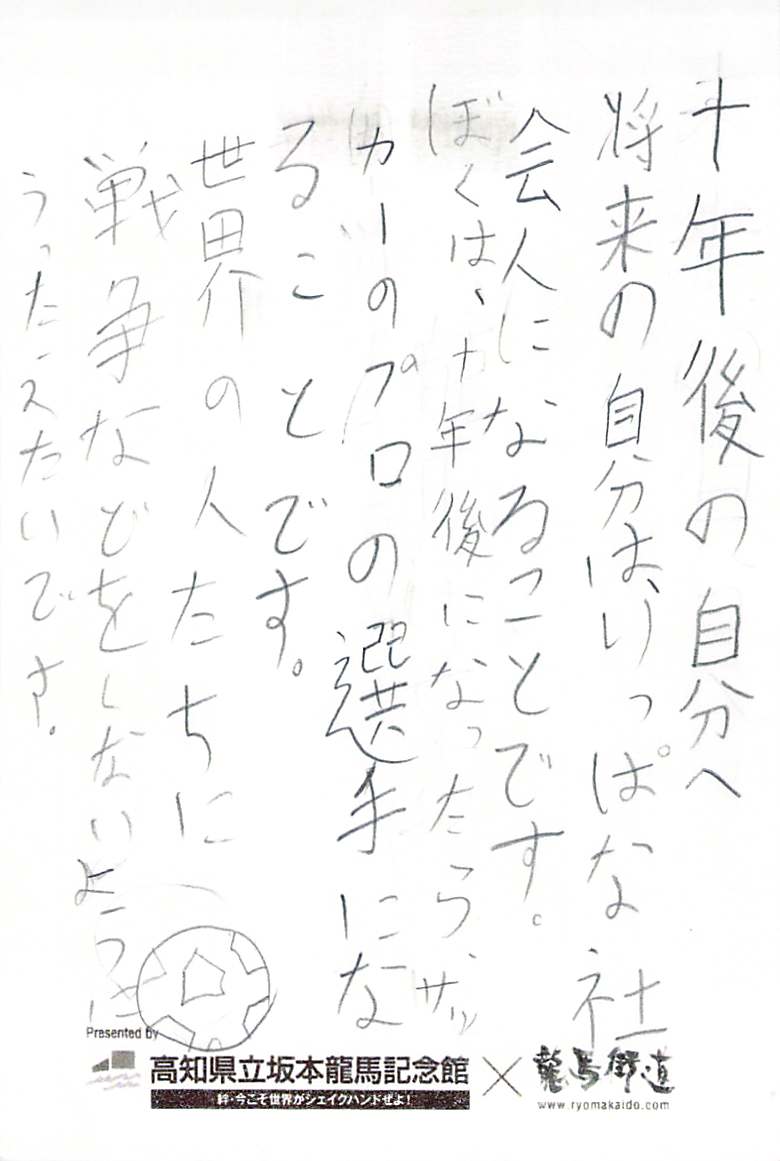 十年後の自分へ
将来の自分は、りっぱな社
会人になることです。
ぼくは、十年後になったら、サッ
カーのプロの選手にな
ることです。
世界の人たちに
戦争などをしないように
うったえたいです。
Presented by
高知県立坂本龍馬記念館
絆・今こそ世界がシェイクハンドぜよ!
×
龍馬街道
www.ryomakaido.com